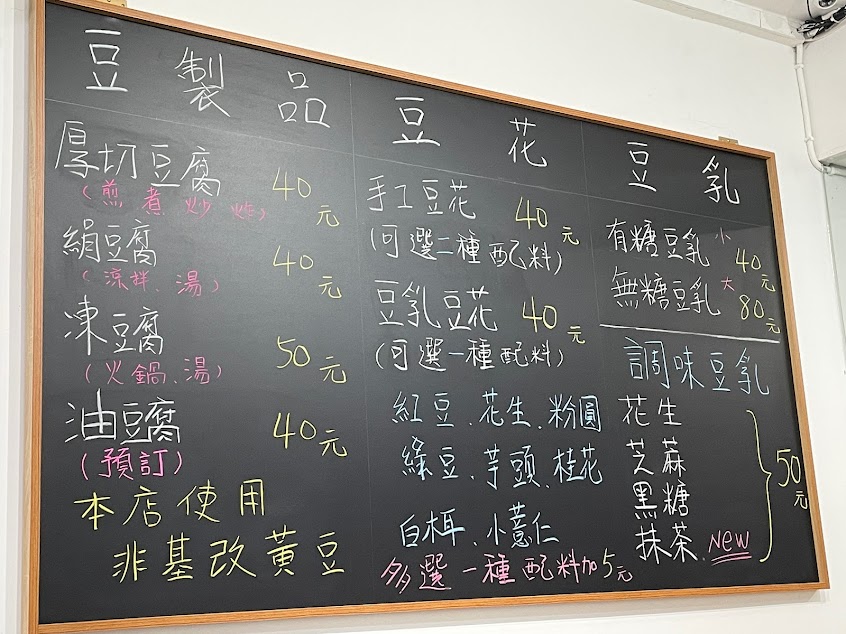 豆製品
厚切豆腐 40元
(煎煮炒炸)
絹豆腐 40元
(涼拌、湯)
凍豆腐 50元
(火鍋、湯)
油豆腐 40元
(預訂)
本店使用
非基改黃豆
豆花
手工豆花 40元
(可選二種配料)
豆乳豆花 40元
(可選一種配料)
紅豆、花生、粉圓
綠豆、芋頭、桂花
白木耳、小薏仁
多選一種配料加5元
豆乳
有糖豆乳 小 40元
無糖豆乳 大 80元
調味豆乳
花生
芝麻
黑糖
抹茶 NEW
50元